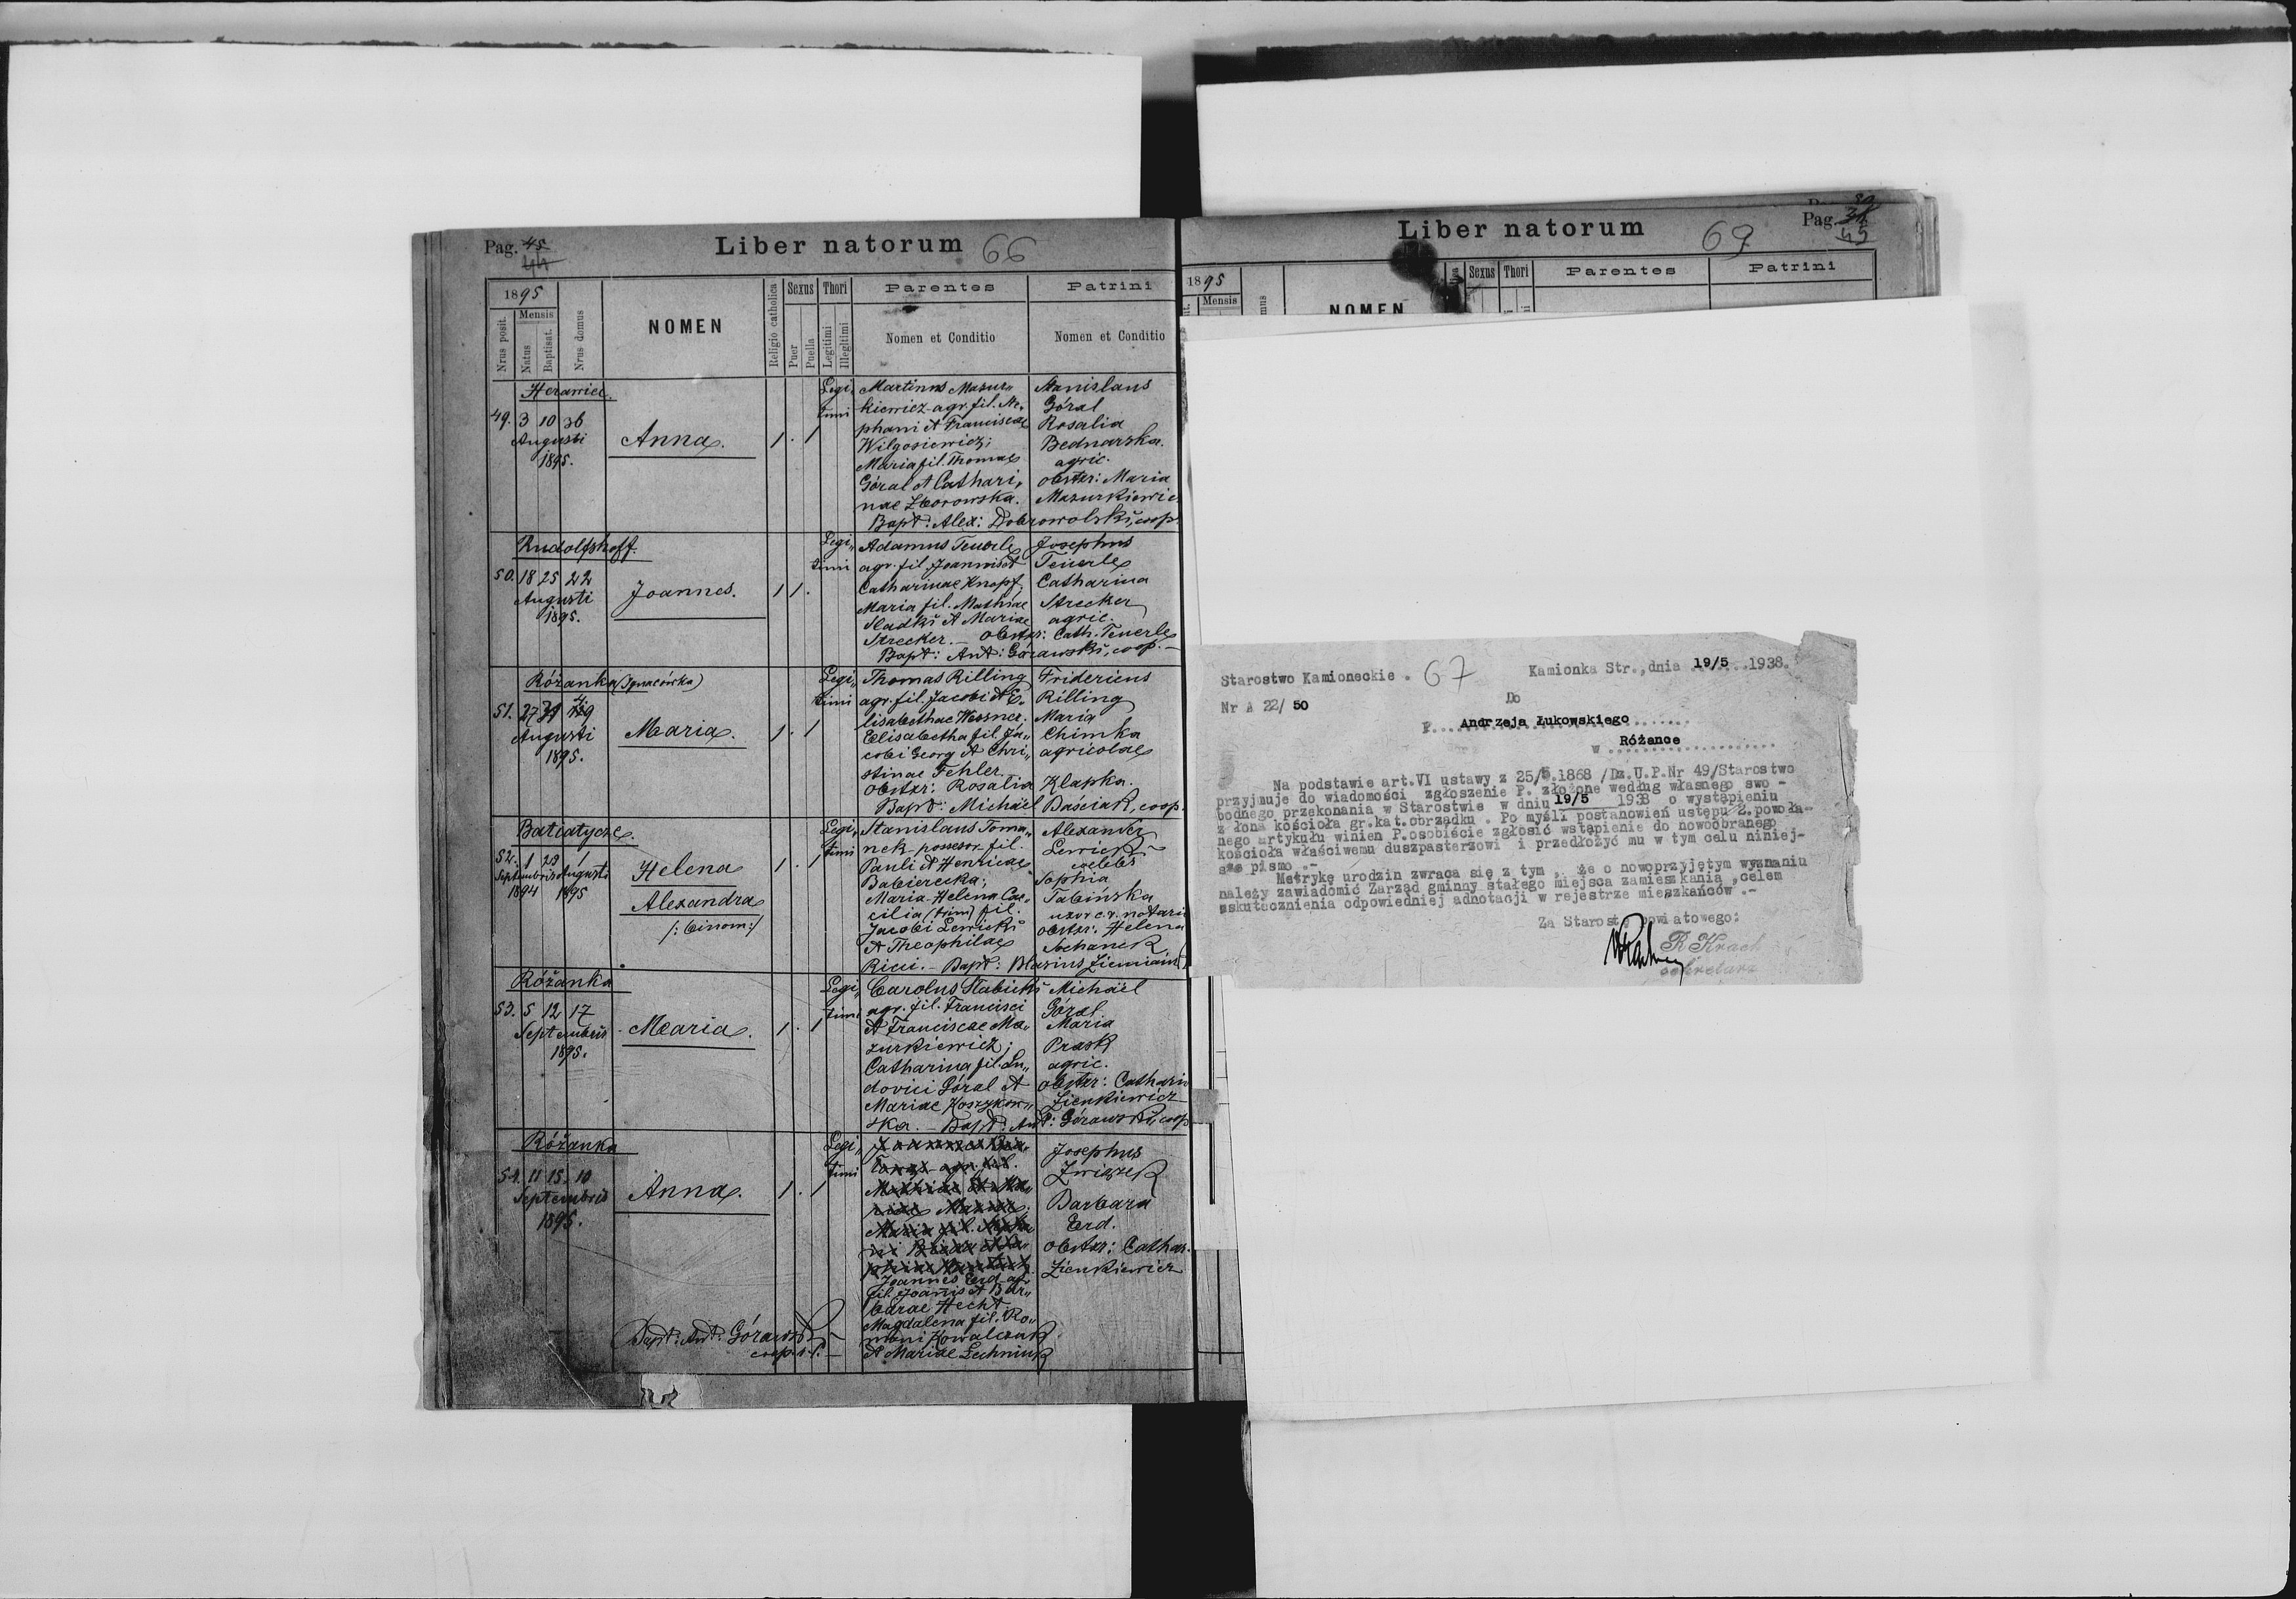 Pag. 45
44
Liber natorum
66
1895
Mensis
Nrus posit.
Natus
Baptisat.
Nrus domus
NOMEN
Religio catholica
Sexus
Puer
Puella
Thori
Legitimi
Illegitimi
Parentes
Nomen et Conditio
Patrini
Nomen et Conditio
Herawiec.
49. 3 10 36
Augusti
1895.
Anna.
1 . 1
Legi„
timi
Martinus Mazur„
kiewicz agr. fil. Ste„
phani et Franciscae
Wilgosiewicz;
Maria fil. Thomae
Góral et Cathari„
nae Zborowska.
Stanislaus
Góral
Rosalia
Bednarska.
agric.
obstzr: Maria
Mazurkiewic
Bapt: Alex: Dobrowolski, coop.
Rudolfshoff.
50. 18 25 22
Augusti
1895.
Joannes.
1 1 .
Legi„
timi
Adamus Teuerle
agr. fil. Joannis et
Catharinae Knopf,
Maria fil. Mathiae
Sladki et Mariae
Strecker. –
Josephus
Teuerle
Catharina
Strecker
agric.
obstzr: Cath. Teuerle
Bapt: Ant: Górawski, coop. –
Różanka (Ignacówka)
51. 27 31 9
Augusti
1895.
Maria.
1 . 1
Legi„
timi
Thomas Rilling
agr. fil. Jacobi et E„
lisabethae Wessner.
Elisabetha fil. Ja„
cobi Georg et Chri„
stinae Fehler.
Fridericus
Rilling
Maria
Chimka
agricolae
obstzr: Rosalia Klapka.
Bapt: Michaël Baściak, coop.
Batiatycze.
52. 1 29 1
Septembris Augusti
1894 1895
Helena
Alexandra
/: binom:/
1 . 1
Legi„
timi
Stanislaus Toma„
nek possesor fil.
Pauli et Henricae
Babierecka;
Maria-Helena Cae„
cilia (trim) fil.
Jacobi Lewicki
et Theophilae
Ricci. –
Alexander
Lewicki
coelebs
Sophia
Tabińska
uxor c. r. notarii
obstzr: Helena
Sochanek
Bapt: Blasius
Różanka
53. 5 12 17
Septembris
1895.
Maria.
1 . 1
Legi„
timi
Carolus Slabicki
agr. fil. Francisci
et Franciscae Ma„
zurkiewicz;
Catharina fil. Lu„
dovici Góral et
Mariae Koszykow„
ska. –
Michaël
Góral
Maria
Prask
agric.
obstzr: Catharin
Zienkiewicz
Bapt: Ant: Górawski, coop
Różanka
54. 11 15 10
Septembris
1895.
Anna.
1 . 1
Legi„
timi
Joannes Erd agr.
fil. Joannis et Bar„
barae Hecht
Magdalena fil. Ro„
mani Kowalczuk
et Mariae Lechniuk
Josephus
Związek
Barbara
Erd.
obstzr: Cathar.
Zienkiewicz
Bapt: Ant: Górawski
coop. –
Liber natorum
69
Pag.
45
1895
Mensis
NOMEN
Sexus
Thori
Parentes
Patrini
Starostwo Kamioneckie .
67
Kamionka Str.,dnia 19/5 1938.
Nr A 22/ 50
Do
P. Andrzeja Łukowskiego
w Różance
Na podstawie art.VI ustawy z 25/5.1868 /Dz.U.P.Nr 49/Starostwo
przyjmuje do wiadomości zgłoszenie P. złożone według własnego swo -
bodnego przekonania w Starostwie w dniu 19/5 1938 o wystąpieniu
z łona kościoła gr.kat.obrządku . Po myśli postanowień ustępu 2.powoła-
nego artykułu winien P.osobiście zgłosić wstąpienie do nowoobranego
kościoła właściwemu duszpasterzowi i przedłożyć mu w tym celu niniej-
sze pismo .-
Metrykę urodzin zwraca się z tym , że o nowoprzyjętym wyznaniu
należy zawiadomić Zarząd gminny stałego miejsca zamieszkania ,celem
uskutecznienia odpowiedniej adnotacji w rejestrze mieszkańców .-
Za Starostę powiatowego:
R Krach
sekretarz